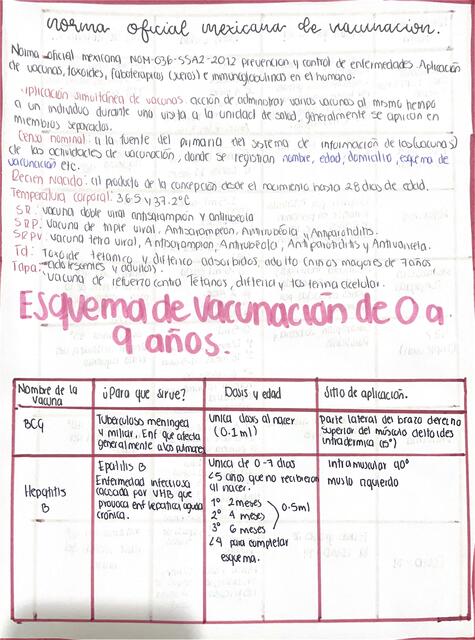 norma oficial mexicana de vacunacion.
Norma oficial mexicana NOM-036-SSA2-2012 prevencion y control de enfermedades. Aplicación
de vacunas, toxoides, faboterapicos (sueros) e inmunoglobulinas en el humano.
Aplicación simultánea de vacunas: acción de administrar varias vacunas al mismo tiempo
a un individuo durante una visita a la unidad de salud, generalmente se aplican en
miembros separados.
Censo nominal: a la fuente del primaria del sistema de información de las (vacunas)
de las actividades de vacunación, donde se registran nombre, edad, domicilio, esquema de
vacunación etc.
Recien Nacido: al producto de la concepción desde el nacimiento hasta 28 dias de edad.
Temperatura corporal: 36.5 y 37.2°C
SR: vacuna doble viral antisarampión y antirubeola
SRP: Vacuna de triple viral, Antisarampeon, Antirrubeola y Antiparotiditis.
SRPV: vacuna tetra viral, Antisarampion, Antirubeola, Antiparotiditis y Antivaricela.
Td: Toxoide tetanico y difterico adsorbidos, adulto (niños mayores de 7 años
adolescentes y adultos).
Tdpa: vacuna de refuerzo contra Tetanos, difteria y tos ferina acelular.
Esquema de vacunación de 0 a
9 años.
Nombre de la vacuna
¿Para que sirve?
Dosis y edad
Sitio de aplicación.
BCG
Tuberculosis meningea
y miliar, Enf que afecta
generalmente a los pulmones
Unica dosis al nacer
(0.1 ml)
Parte lateral del brazo derecho
superior del músculo deltoides
intradermica (15°)
Hepatitis
B
Epatitis B
Enfermedad infecciosa
causada por VHB que
provoca enf hepatica aguda
crónica.
Unica de 0-7 dias
<5 años que no recibieron
al nacer.
1° 2 meses
2° 4 meses
3° 6 meses
0.5ml
<4 para completar
esquema.
intramuscular 90°
muslo izquierdo